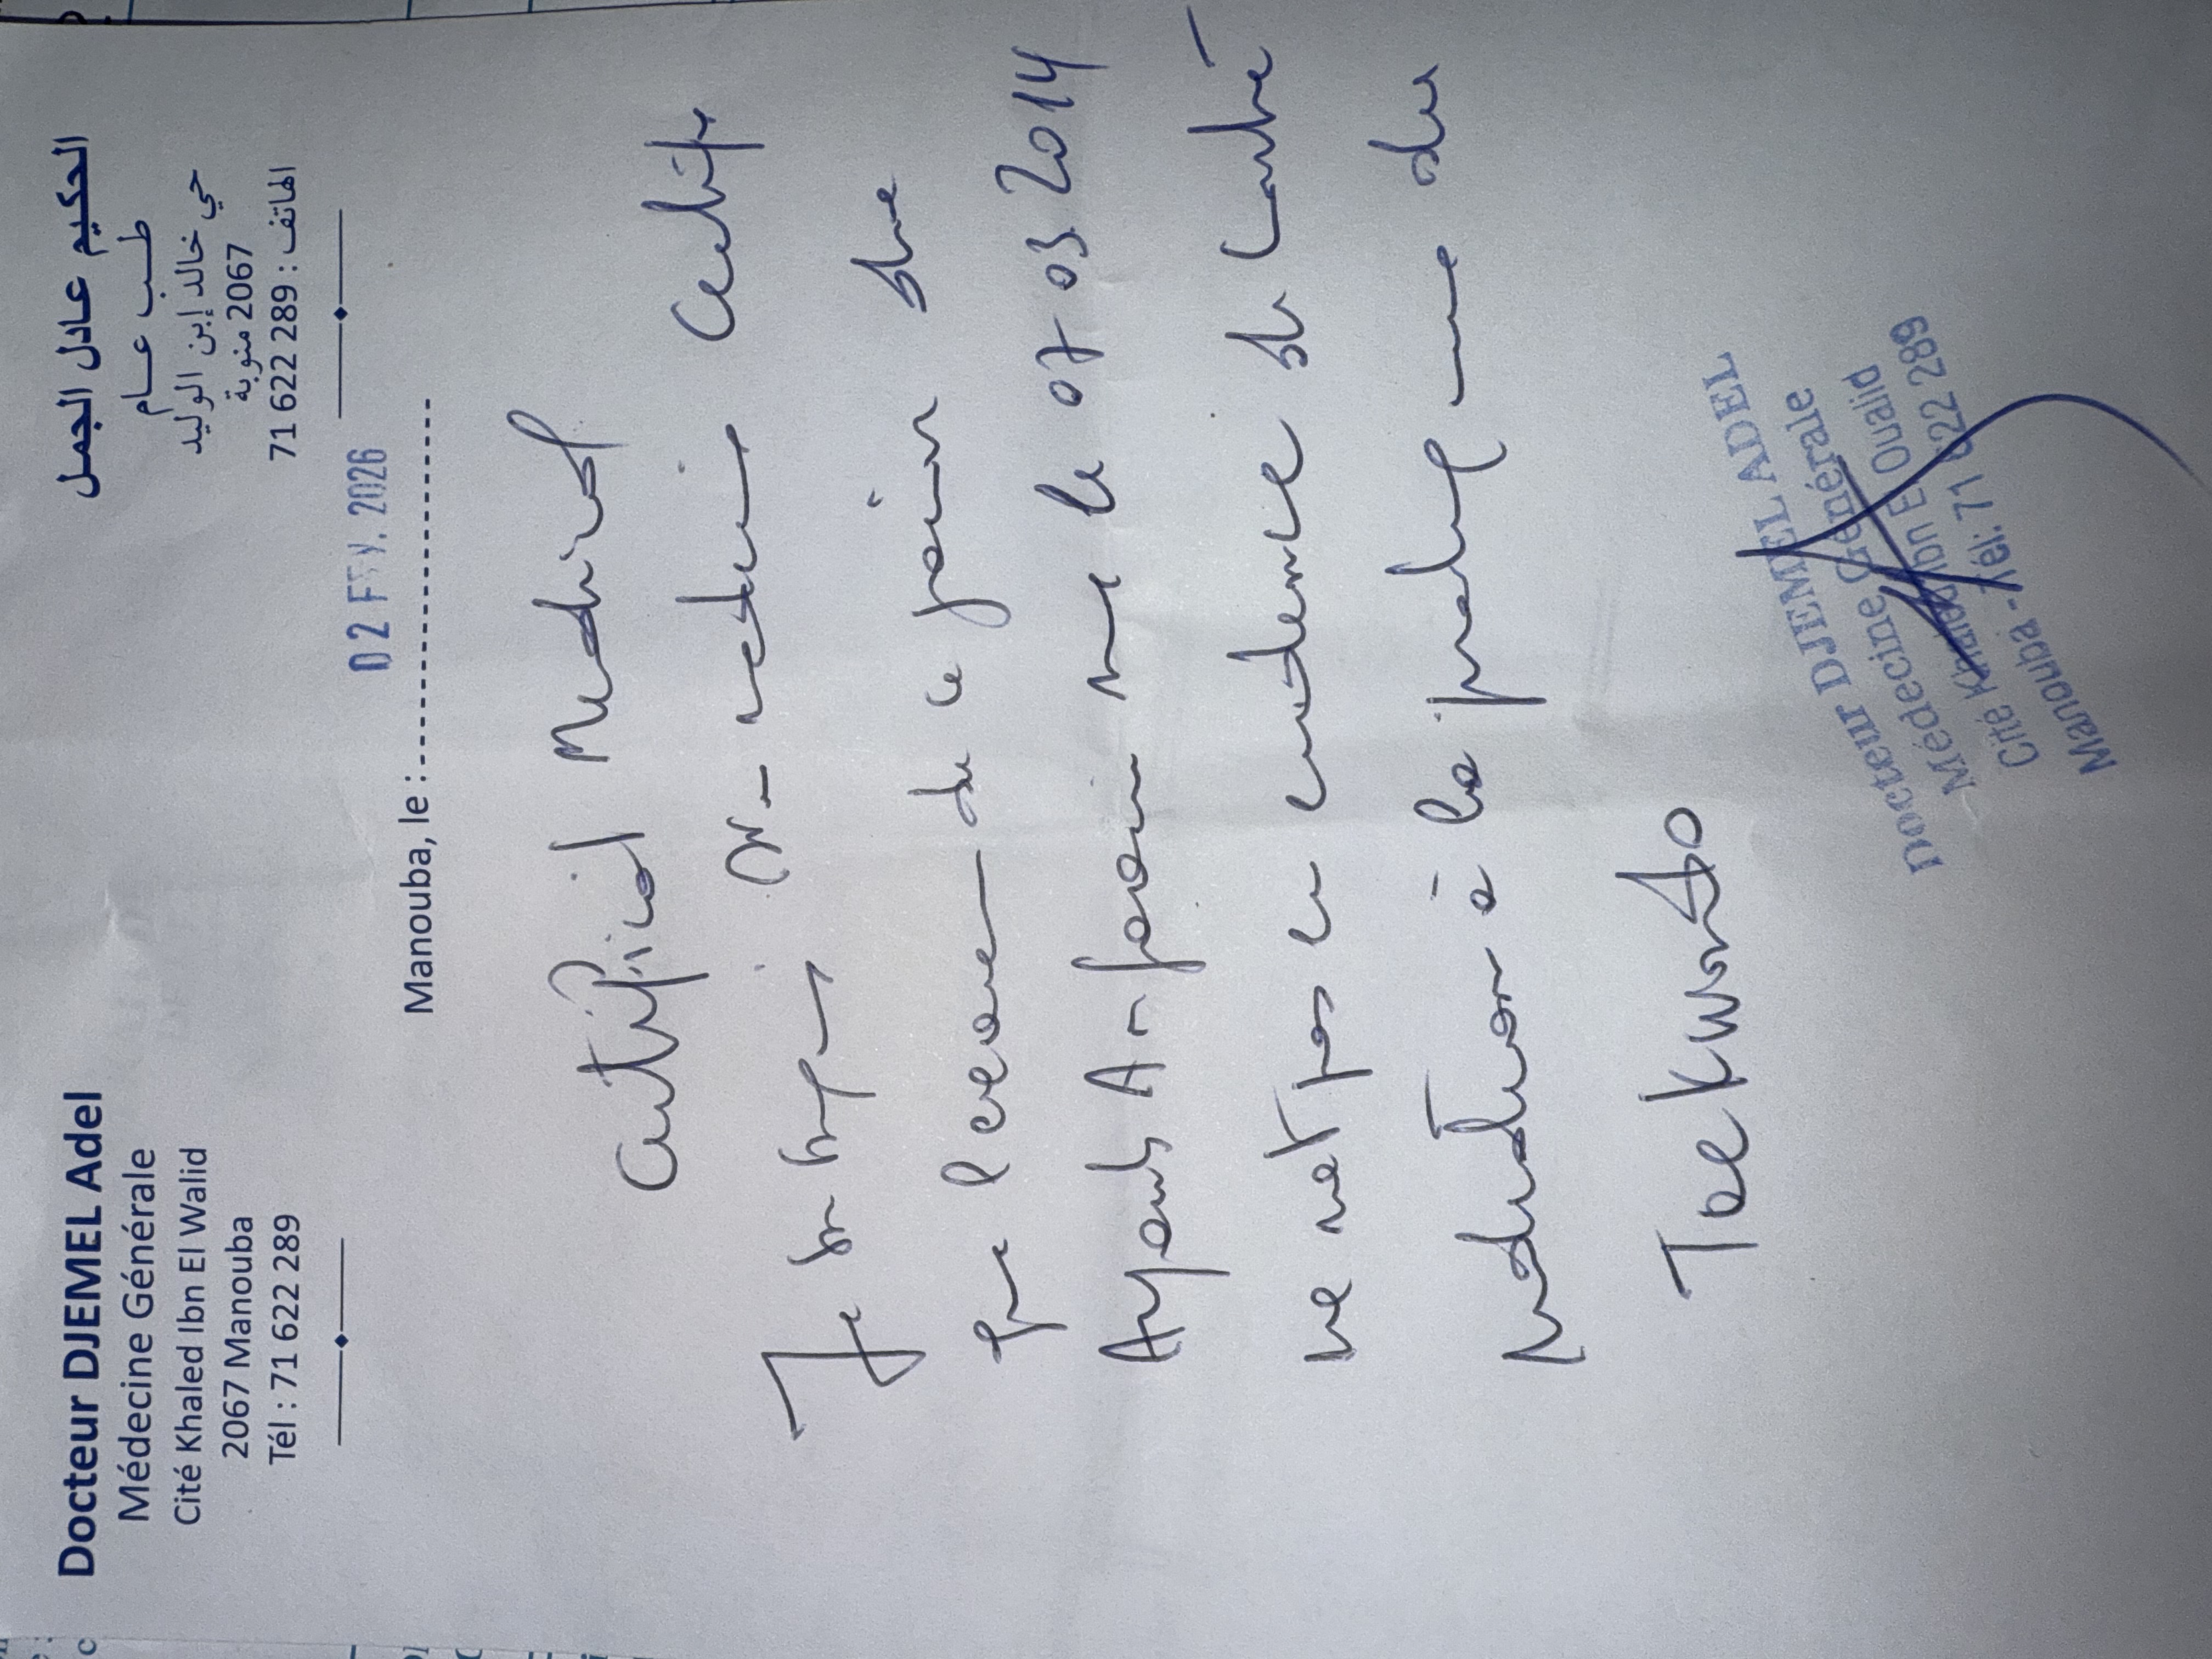 Docteur DJEMEL Adel
Médecine Générale
Cité Khaled Ibn El Walid
2067 Manouba
Tél : 71 622 289
الحكيم عادل الجمل
طب عام
حي خالد إبن الوليد
2067 منوبة
الهاتف : 71 622 289
02 FEV. 2026
Manouba, le :
Certificat Medical
Je Certifie
que l'examen du ce jour de
Ayoub né le 07 03 2014
ne met pas en evidence de Contre
indication à la pratique du
Taekwondo
Docteur DJEMEL ADEL
Médecine Générale
Cité Khaled Ibn E Oualid
Manouba - Tél: 71 622 289